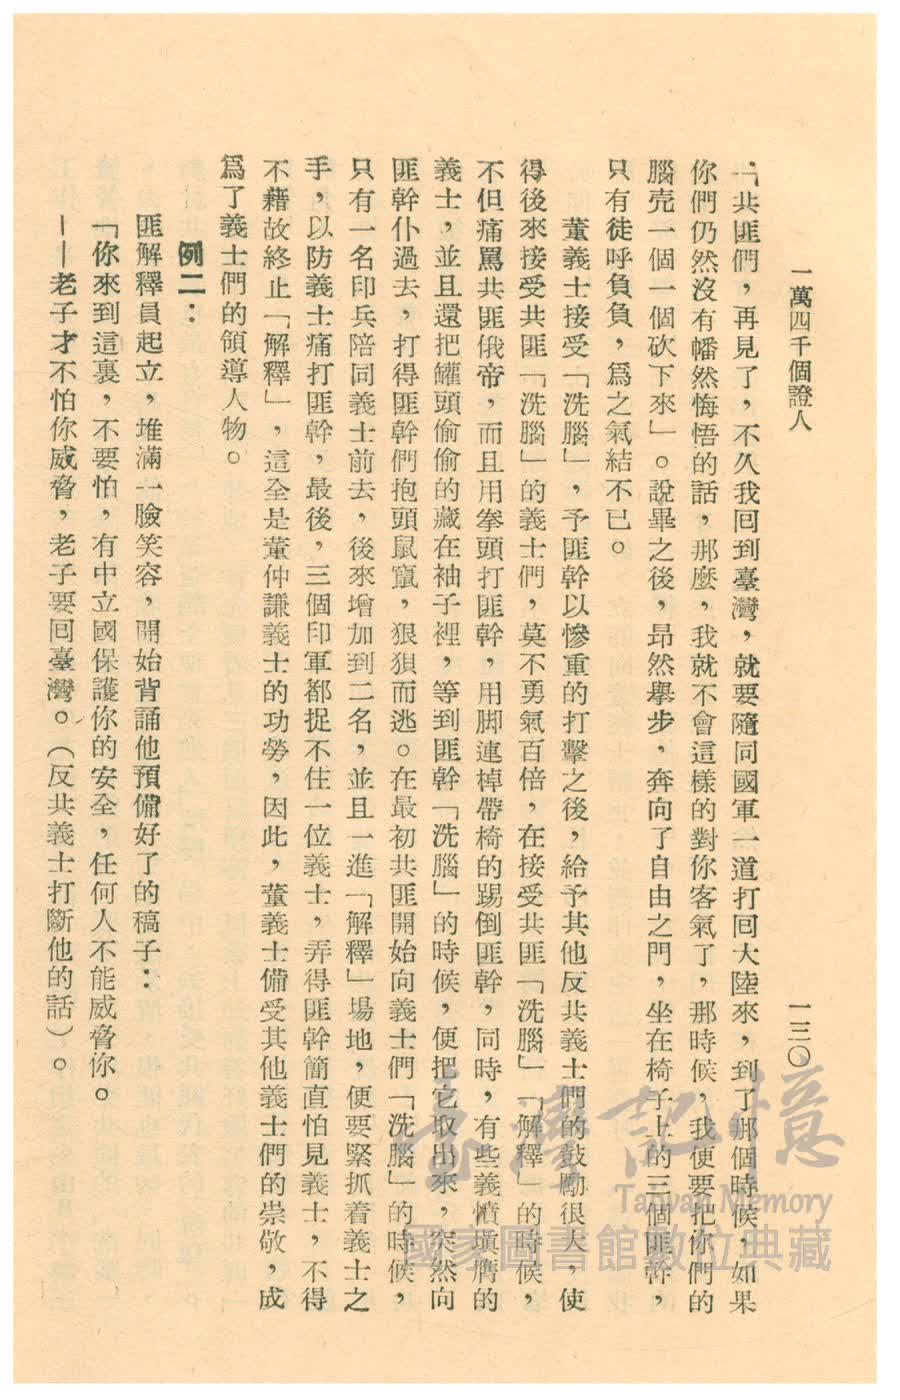 一萬四千個證人
一三〇
「共匪們，再見了，不久我回到臺灣，就要隨同國軍一道打回大陸來，到了那個時候，如果
你們仍然沒有幡然悔悟的話，那麼，我就不會這樣的對你客氣了，那時候，我便要把你們的
腦壳一個一個砍下來」。說畢之後，昻然擧步，奔向了自由之門，坐在椅子上的三個匪幹，
只有徒呼負負，爲之氣結不已。
董義士接受「洗腦」，予匪幹以慘重的打擊之後，給予其他反共義士們的鼓勵很大，使
得後來接受共匪「洗腦」的義士們，莫不勇氣百倍，在接受共匪「洗腦」「解釋」的時候，
不但痛駡共匪俄帝，而且用拳頭打匪幹，用脚連棹帶椅的踢倒匪幹，同時，有些義憤塡膺的
義士，並且還把罐頭偷偷的藏在袖子裡，等到匪幹「洗腦」的時候，便把它取出來，突然向
匪幹仆過去，打得匪幹們抱頭鼠竄，狠狽而逃。在最初共匪開始向義士們「洗腦」的時候，
只有一名印兵陪同義士前去，後來增加到二名，並且一進「解釋」場地，便要緊抓着義士之
手，以防義士痛打匪幹，最後，三個印軍都捉不住一位義士，弄得匪幹簡直怕見義士，不得
不藉故終止「解釋」，這全是董仲謙義士的功勞，因此，董義士備受其他義士們的崇敬，成
爲了義士們的領導人物。
例二：
匪解釋員起立，堆滿一臉笑容，開始背誦他預備好了的稿子：
「你來到這裏，不要怕，有中立國保護你的安全，任何人不能威脅你。
——老子才不怕你威脅，老子要回臺灣。（反共義士打斷他的話）。
臺灣記憶
Taiwan Memory
國家圖書館數位典藏